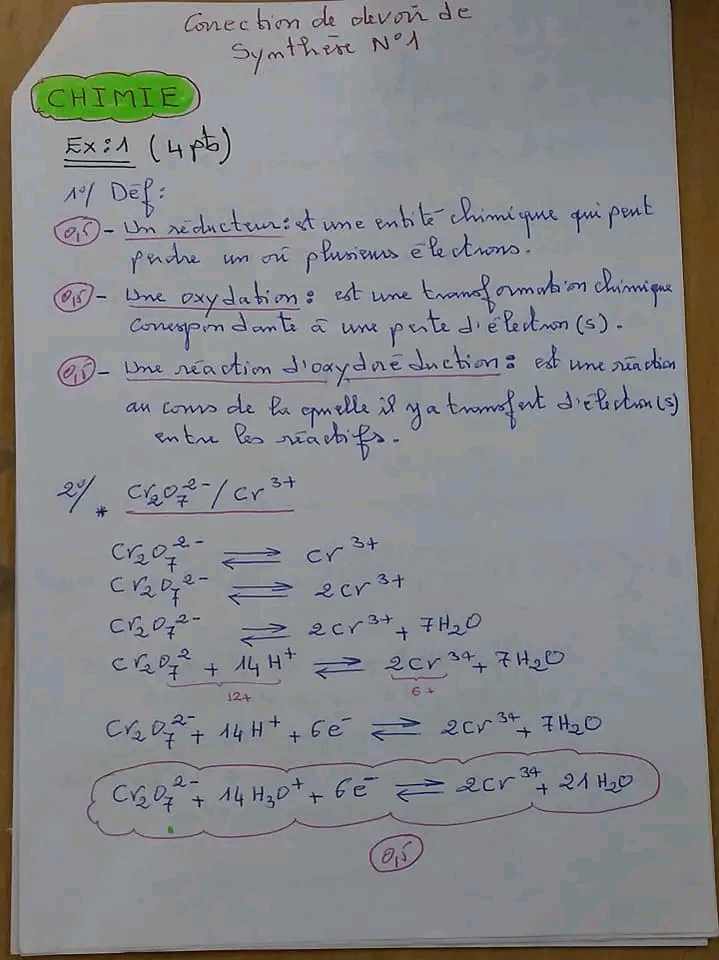 Correction de devoir de
Synthèse N°1
CHIMIE
Ex:1 (4 pts)
1°/ Déf:
0,5 - Un réducteur: est une entité chimique qui peut
perdre un où plusieurs électrons.
0,5 - Une oxydation: est une transformation chimique
correspondante à une perte d'électron(s).
0,5 - Une réaction d'oxydoréduction: est une réaction
au cours de la quelle il y a transfert d'électron(s)
entre les réactifs.
2°/ * Cr₂O₇²⁻/Cr³⁺
Cr₂O₇²⁻ ⇌ Cr³⁺
Cr₂O₇²⁻ ⇌ 2Cr³⁺
Cr₂O₇²⁻ ⇌ 2Cr³⁺ + 7H₂O
Cr₂O₇² + 14H⁺ ⇌ 2Cr³⁺ + 7H₂O
12+ 6+
Cr₂O₇²⁻ + 14H⁺ + 6e⁻ ⇌ 2Cr³⁺ + 7H₂O
Cr₂O₇²⁻ + 14H₃O⁺ + 6e⁻ ⇌ 2Cr³⁺ + 21H₂O
0,5